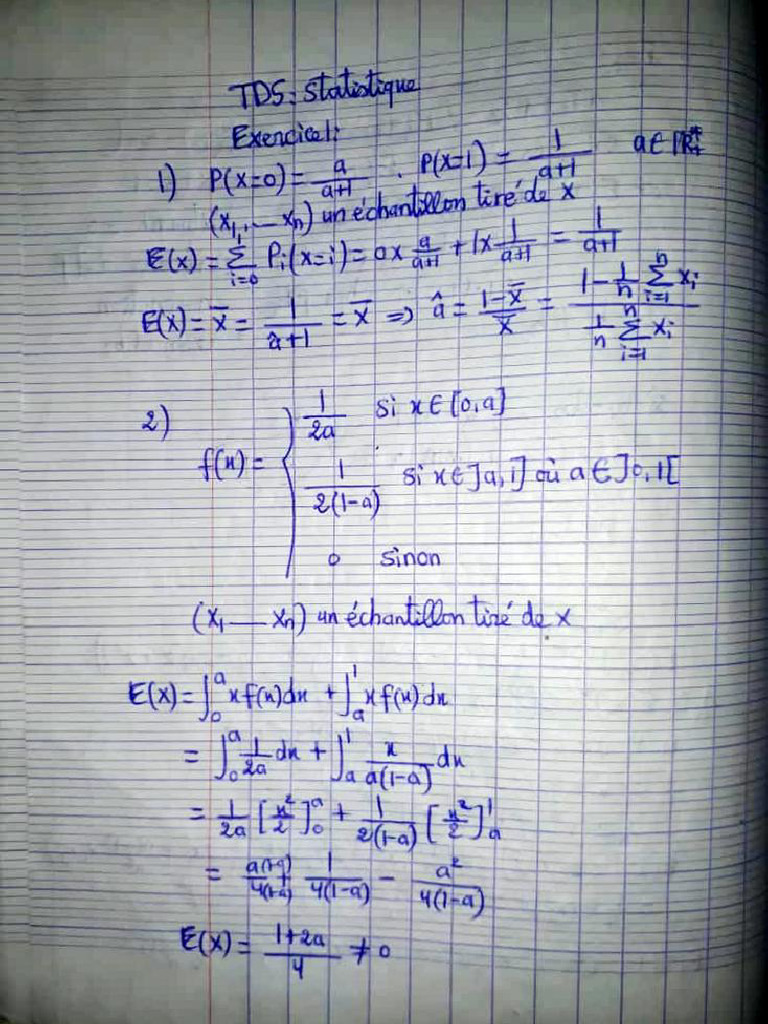 TD5: Statistique
Exercice1:
1) P(x=0) = a/(a+1) . P(x=1) = 1/(a+1) a ∈ ℝ*₊
(x₁, — xₙ) un échantillon tiré de x
E(x) = Σ_{i=0}^{1} Pᵢ(x=i) = 0x a/(a+1) + 1x 1/(a+1) = 1/(a+1)
E(x) = x̄ = 1/(â+1) = x̄ ⇒ â = (1-x̄)/x̄ = (1 - 1/n Σ_{i=1}^{n} xᵢ)/(1/n Σ_{i=1}^{n} xᵢ)
2)
f(x) = { 1/(2a) si x ∈ [0,a]
1/(2(1-a)) si x ∈ ]a,1] où a ∈ ]0,1[
0 sinon
(x₁ — xₙ) un échantillon tiré de x
E(x) = ∫₀ᵃ x f(x) dx + ∫ₐ¹ x f(x) dx
= ∫₀ᵃ 1/(2a) dx + ∫ₐ¹ x/(a(1-a)) dx
= 1/(2a) [x²/2]₀ᵃ + 1/(2(1-a)) [x²/2]ₐ¹
= a(1-a)/(4(1-a)) + 1/(4(1-a)) - a²/(4(1-a))
E(x) = (1+2a)/4 ≠ 0